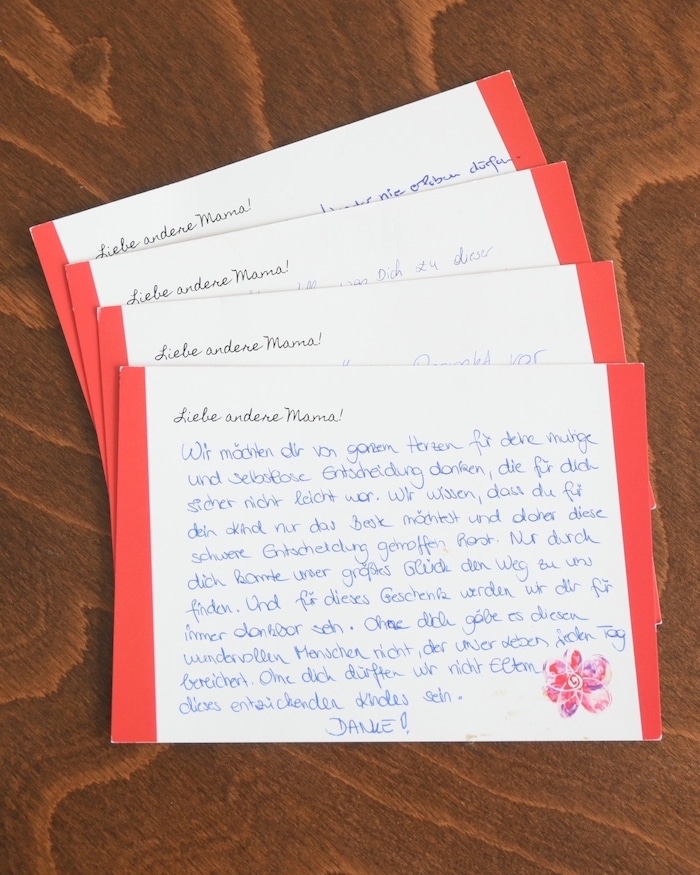 Liebe andere Mama!
nie erleben dürfen.
Liebe andere Mama!
Dich zu dieser
Liebe andere Mama!
vor
Liebe andere Mama!
Wir möchten dir von ganzem Herzen für deine mutige
und selbstlose Entscheidung danken, die für dich
sicher nicht leicht war. Wir wissen, dass du für
dein Kind nur das Beste möchtest und daher diese
schwere Entscheidung getroffen hast. Nur durch
dich konnte unser größtes Glück den Weg zu uns
finden. Und für dieses Geschenk werden wir dir für
immer dankbar sein. Ohne dich gäbe es diesen
wundervollen Menschen nicht, der unser Leben jeden Tag
bereichert. Ohne dich dürften wir nicht Eltern
dieses entzückenden Kindes sein.
DANKE!